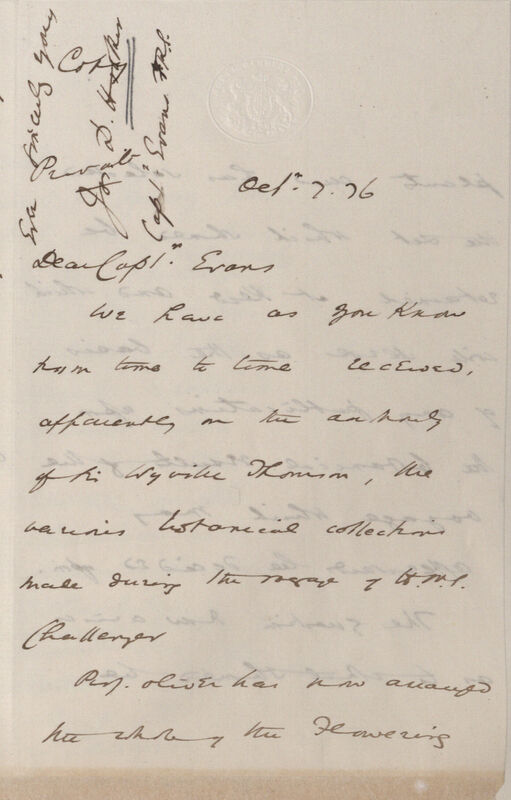 Copy
Private
Octr. 7. 76
Dear Captn. Evans
We have as you know
from time to time received,
apparently on the authority
of Sir Wyville Thomson, the
various botanical collections
made during the voyage of H.M.S.
Challenger
Prof. Oliver has now arranged
the whole of the Flowering
Ever sincerely yours
Jos. D. Hooker
Captn Evans FRS.